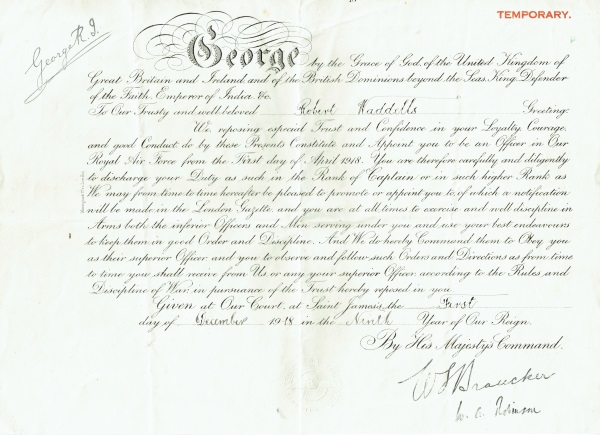 TEMPORARY.
George R.I.
George by the Grace of God, of the United Kingdom of
Great Britain and Ireland, and of the British Dominions beyond the Seas, King, Defender
of the Faith, Emperor of India, &c.
To Our Trusty and well beloved Robert Waddells Greeting:
We, reposing especial Trust and Confidence in your Loyalty, Courage,
and good Conduct, do by these Presents Constitute and Appoint you to be an Officer in Our
Royal Air Force from the First day of April 1918. You are therefore carefully and diligently
to discharge your Duty as such in the Rank of Captain or in such higher Rank as
We may from time to time hereafter be pleased to promote or appoint you to, of which a notification
will be made in the London Gazette, and you are at all times to exercise and well discipline in
Arms both the inferior Officers and Men serving under you and use your best endeavours
to keep them in good Order and Discipline. And We do hereby Command them to Obey you
as their superior Officer and you to observe and follow such Orders and Directions as from time
to time you shall receive from Us, or any your superior Officer, according to the Rules and
Discipline of War, in pursuance of the Trust hereby reposed in you.
Given at Our Court, at Saint James's, the First
day of December 1918 in the Ninth Year of Our Reign.
By His Majesty's Command.
W. A. Robinson